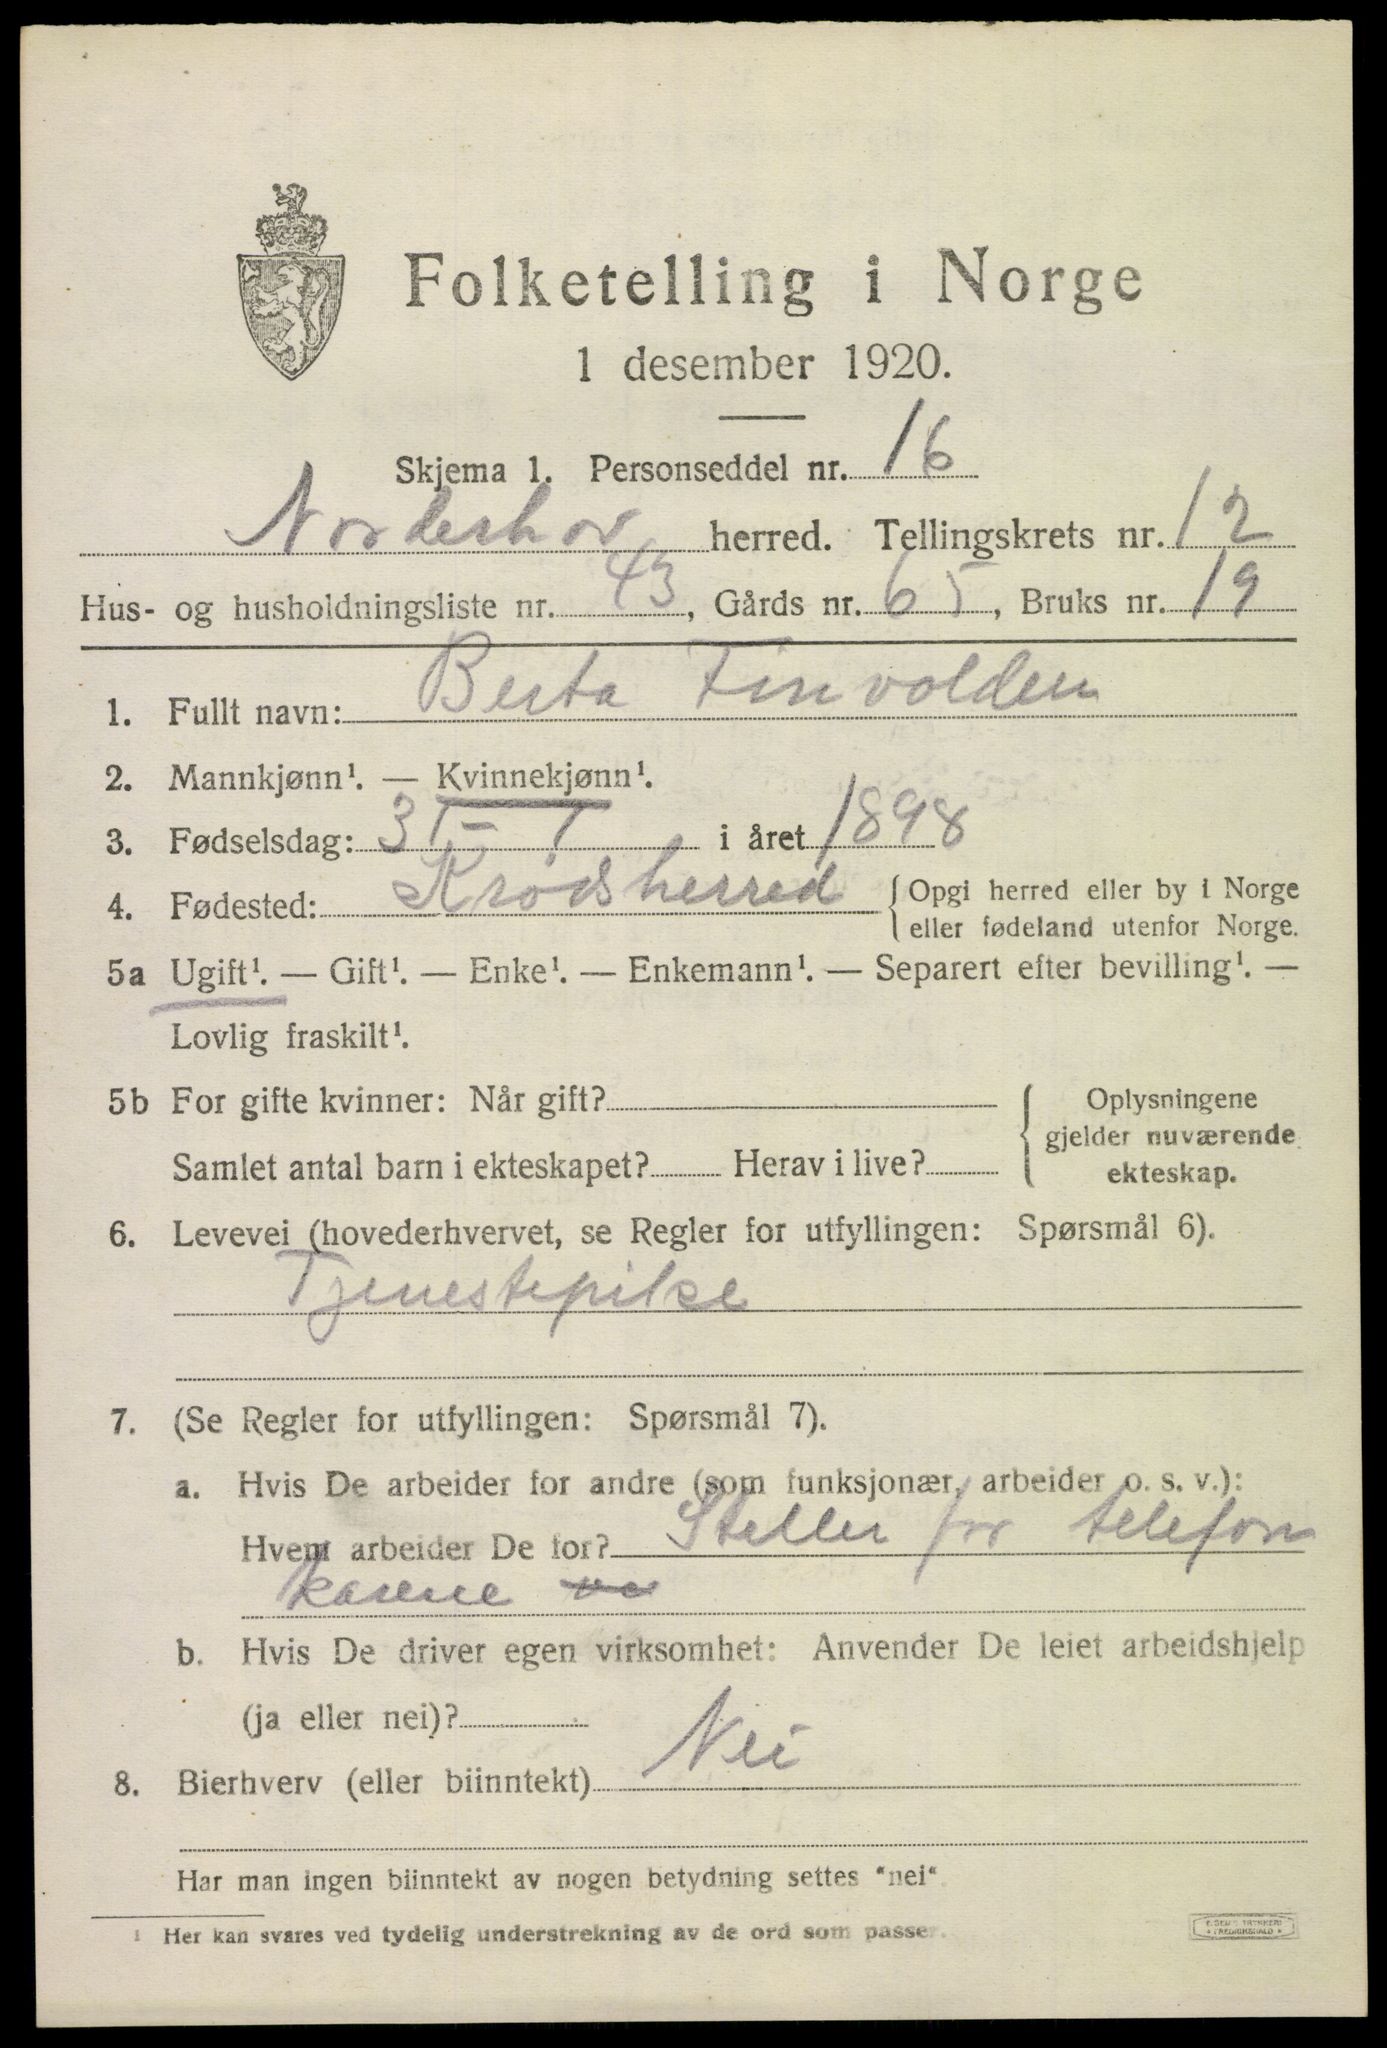 Folketelling i Norge
1 desember 1920.
Skjema 1. Personseddel nr. 16
Norderhov herred. Tellingskrets nr. 12
Hus- og husholdningsliste nr. 43, Gårds nr. 65, Bruks nr. 19
1. Fullt navn: Berta Finvolden
2. Mannkjønn¹. — Kvinnekjønn¹.
3. Fødselsdag: 31 - 1 i året 1898
4. Fødested: Krødsherred { Opgi herred eller by i Norge
eller fødeland utenfor Norge.
5a Ugift¹. — Gift¹. — Enke¹. — Enkemann¹. — Separert efter bevilling¹. —
Lovlig fraskilt¹.
5b For gifte kvinner: Når gift? { Oplysningene
gjelder nuværende
Samlet antal barn i ekteskapet? Herav i live? ekteskap.
6. Levevei (hovederhvervet, se Regler for utfyllingen: Spørsmål 6).
Tjenestepike
7. (Se Regler for utfyllingen: Spørsmål 7).
a. Hvis De arbeider for andre (som funksjonær, arbeider o. s. v.):
Hvem arbeider De for? Steller for telefon
karene
b. Hvis De driver egen virksomhet: Anvender De leiet arbeidshjelp
(ja eller nei)?
8. Bierhverv (eller biinntekt) Nei
Har man ingen biinntekt av nogen betydning settes "nei".
¹ Her kan svares ved tydelig understrekning av de ord som passer.